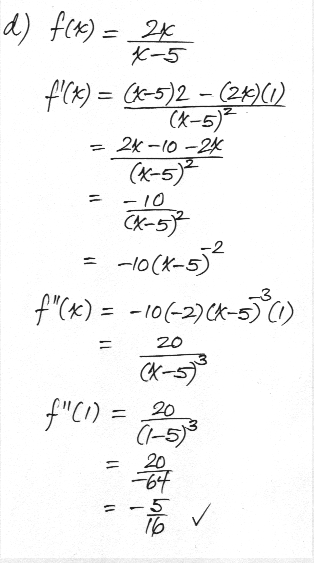 d) f(x) = 2x/(x-5)
f'(x) = ((x-5)2 - (2x)(1))/(x-5)²
= (2x-10-2x)/(x-5)²
= -10/(x-5)²
= -10(x-5)⁻²
f"(x) = -10(-2)(x-5)⁻³(1)
= 20/(x-5)³
f"(1) = 20/(1-5)³
= 20/-64
= -5/16 ✓